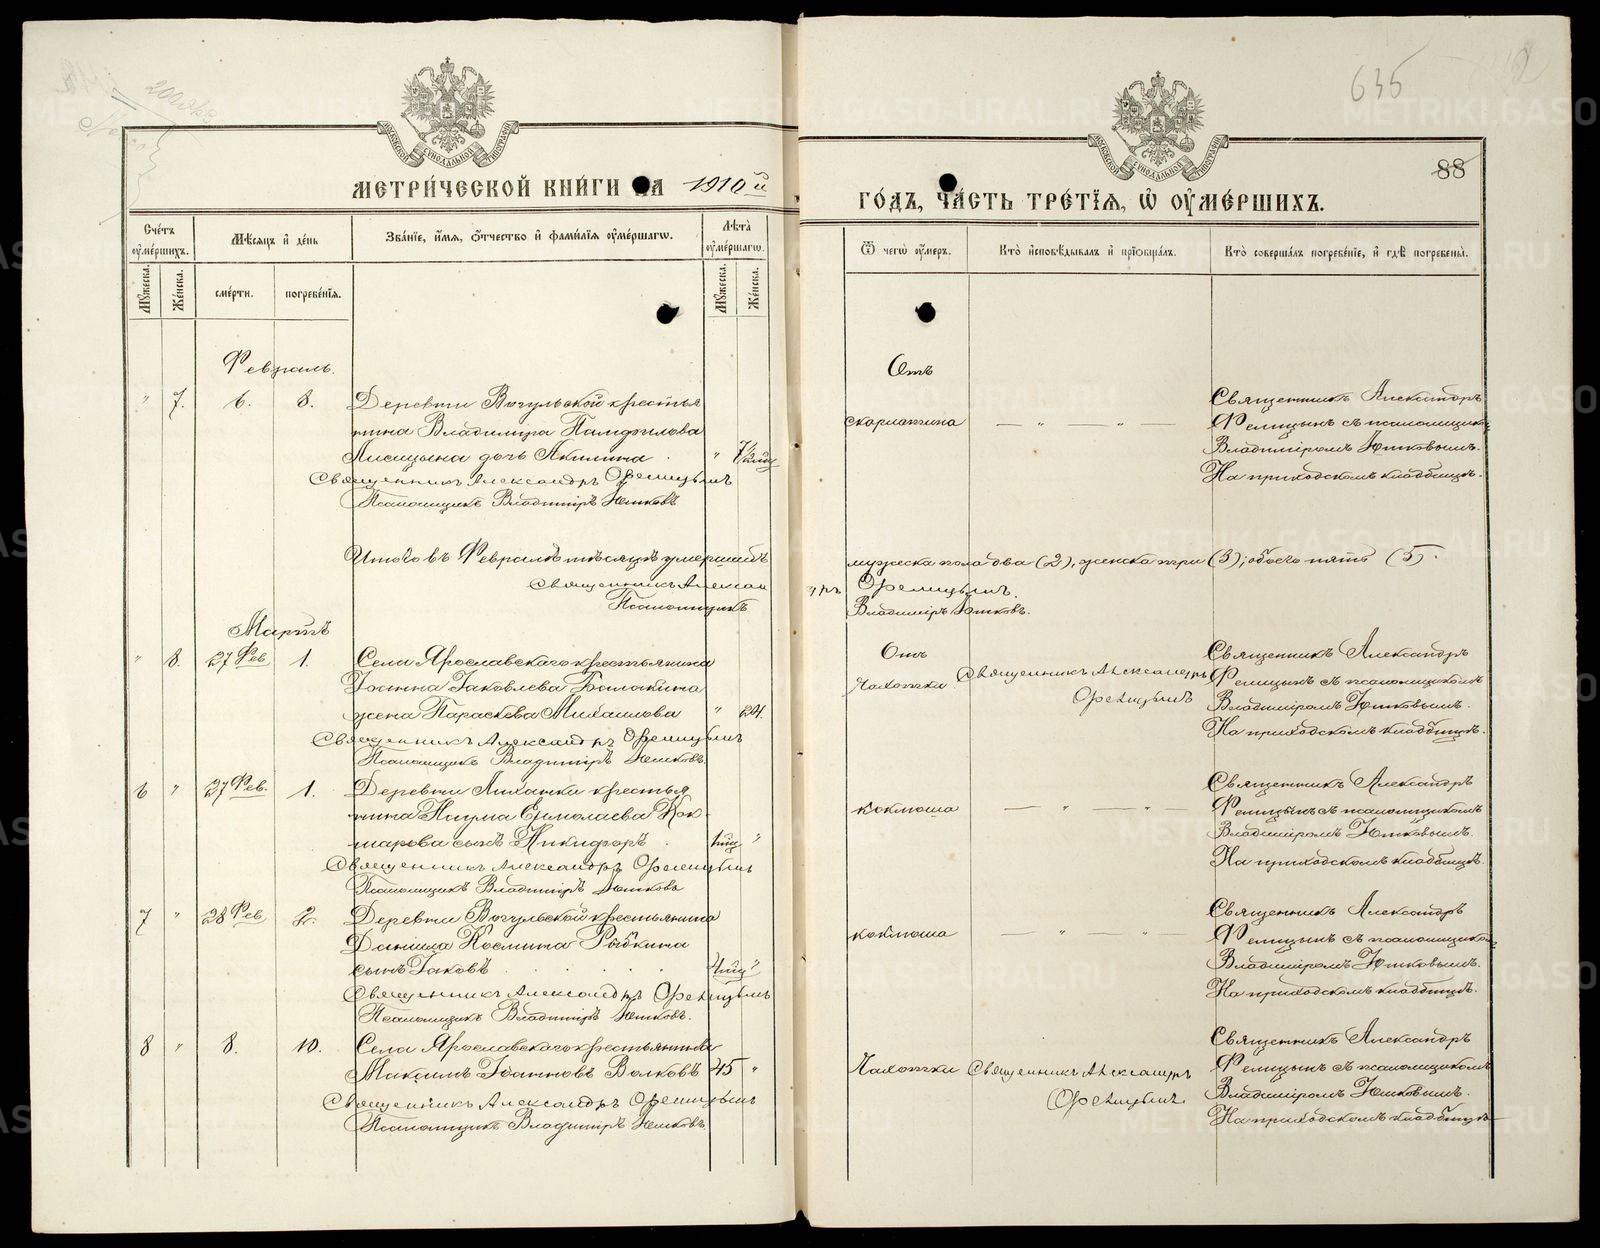 635
88
МЕТРИ́ЧЕСКОЙ КНИ́ГИ НА 1910й
ГО́ДЪ, ЧА́СТЬ ТРЕ́ТІЯ, Ѿ ОУМЕ́РШИХЪ.
Сче́тъ оуме́ршихъ.
Мѣ́сяцъ и де́нь
Зва́ніе, и́мя, о́тчество и фами́лія оуме́ршагѡ.
Лѣ́та оуме́ршагѡ.
Ѿ чегѡ̀ оу́меръ.
Кто̀ исповѣ́дывалъ и пріобща́лъ.
Кто̀ соверша́лъ погребе́ніе, и гдѣ̀ погребены̀.
Му́жеска.
Же́нска.
сме́рти.
погребе́нія.
Му́жеска.
Же́нска.
Февраль.
Отъ
" 7. 6. 8. Деревни Вогульской крестья
нина Владимира Памфилова
Лисицына дочь Акилина " 7 1/2 мц
Священникъ Александръ Фелицынъ
Псаломщикъ Владиміръ Юшковъ
скарлатина — " " —
Священникъ Александръ
Фелицынъ съ псаломщикомъ
Владиміромъ Юшковымъ.
На приходскомъ кладбищѣ.
Итого въ Февралѣ мѣсяцѣ умершихъ
мужеска пола два (2), женска три (3); обоего пять (5).
Священникъ Алексан
дръ Фелицынъ.
Псаломщикъ
Владиміръ Юшковъ.
Мартъ
Отъ
" 8. 27 Фев. 1. Села Ярославскаго крестьянина
Іоанна Іаковлева Балакина
жена Параскева Михаилова " 24.
Священникъ Александръ Фелицынъ
Псаломщикъ Владиміръ Юшковъ.
Чахотки Священникъ Александръ
Фелицынъ
Священникъ Александръ
Фелицынъ съ псаломщикомъ
Владиміромъ Юшковымъ.
На приходскомъ кладбищѣ.
6 " 27 Фев. 1. Деревни крестья
нина Наума Ермолаева Кок-
шарова сынъ Никифоръ 1 мц "
Священникъ Александръ Фелицынъ
Псаломщикъ Владиміръ Юшковъ
коклюша — " " —
Священникъ Александръ
Фелицынъ съ псаломщикомъ
Владиміромъ Юшковымъ.
На приходскомъ кладбищѣ.
7 " 28 Фев. 2. Деревни Вогульской крестьянина
Даніила Космина Рыбкина
сынъ Іаковъ 4 мц "
Священникъ Александръ Фелицынъ
Псаломщикъ Владиміръ Юшковъ.
коклюша — " " —
Священникъ Александръ
Фелицынъ съ псаломщикомъ
Владиміромъ Юшковымъ.
На приходскомъ кладбищѣ.
8 " 8. 10. Села Ярославскаго крестьянинъ
Максимъ Іоанновъ Волковъ 45 "
Священникъ Александръ Фелицынъ
Псаломщикъ Владиміръ Юшковъ
Чахотки Священникъ Александръ
Фелицынъ.
Священникъ Александръ
Фелицынъ съ псаломщикомъ
Владиміромъ Юшковымъ.
На приходскомъ кладбищѣ